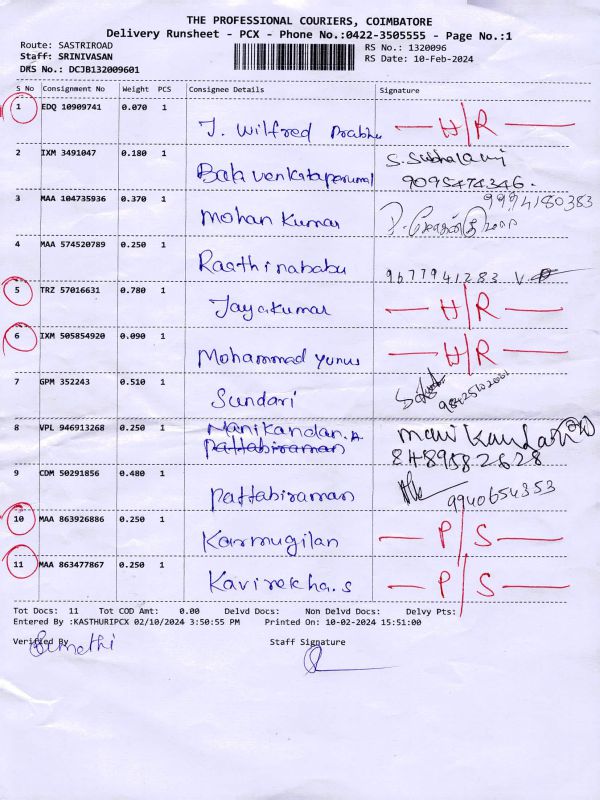 THE PROFESSIONAL COURIERS, COIMBATORE
Delivery Runsheet - PCX - Phone No.:0422-3505555 - Page No.:1
Route: SASTRIROAD
RS No.: 1320096
Staff: SRINIVASAN
RS Date: 10-Feb-2024
DRS No.: DCJB132009601
S No Consignment No Weight PCS Consignee Details Signature
1 EDQ 10909741 0.070 1 J. Wilfred Prabhu H/R
2 IXM 3491047 0.180 1 Bala venkataperumal
9095474346.
3 MAA 104735936 0.370 1 Mohan Kumar 9994180383
4 MAA 574520789 0.250 1 Raathinababu 9677941283 V.
5 TRZ 57016631 0.780 1 Jayakumar H/R
6 IXM 505854920 0.090 1 Mohammad yunus H/R
7 GPM 352243 0.510 1 Sundari
8 VPL 946913268 0.250 1 Manikandan. A Manikandan
pattabiraman 8489582628
9 CDM 50291856 0.480 1 pattabiraman 9940654353
10 MAA 863926886 0.250 1 Karmugilan P/S
11 MAA 863477867 0.250 1 Kavirekha.s P/S
Tot Docs: 11 Tot COD Amt: 0.00 Delvd Docs: Non Delvd Docs: Delvy Pts:
Entered By :KASTHURIPCX 02/10/2024 3:50:55 PM Printed On: 10-02-2024 15:51:00
Verified By Staff Signature